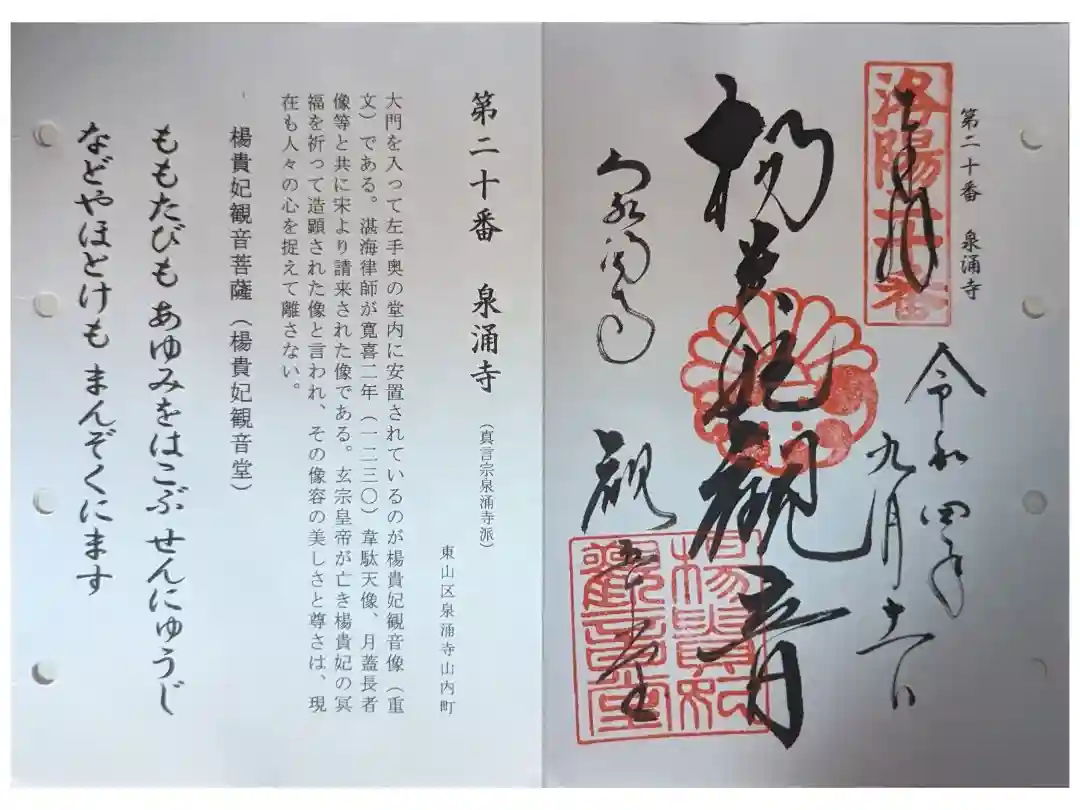 第二十番　泉涌寺
洛陽二十番
奉拝
令和四年
九月
楊貴妃観音
泉涌寺
観音堂
楊貴妃
觀音堂
第二十番　泉涌寺（真言宗泉涌寺派）
東山区泉涌寺山内町
大門を入って左手奥の堂内に安置されているのが楊貴妃観音像（重
文）である。湛海律師が寛喜二年（一二三〇）韋駄天像、月蓋長者
像等と共に宋より請来された像である。玄宗皇帝が亡き楊貴妃の冥
福を祈って造顕された像と言われ、その像容の美しさと尊さは、現
在も人々の心を捉えて離さない。
楊貴妃観音菩薩（楊貴妃観音堂）
ももたびも あゆみをはこぶ せんにゅうじ
などやほとけも まんぞくにます